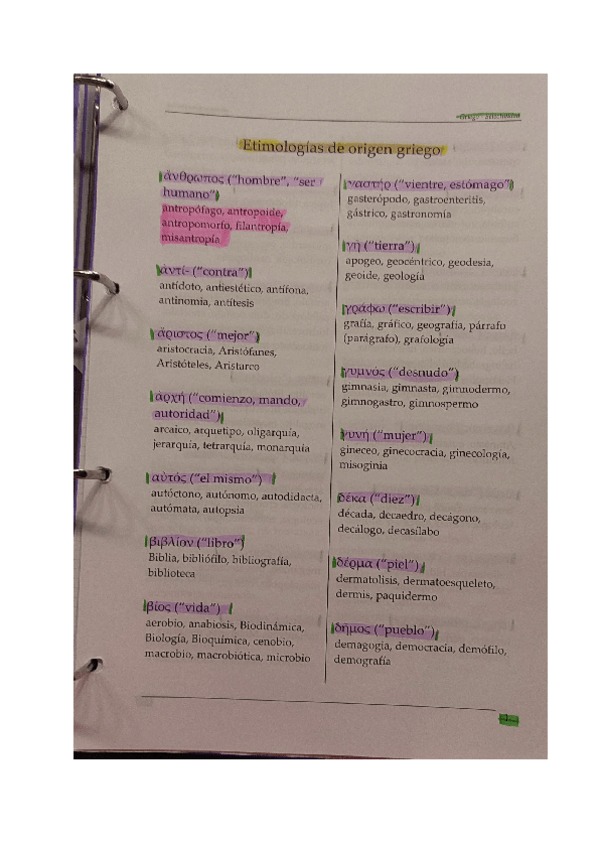 Etimologías de origen griego
ἄνθρωπος ("hombre", "ser
humano")
antropófago, antropoide,
antropomorfo, filantropía,
misantropía
ἀντί- ("contra")
antídoto, antiestético, antífona,
antinomia, antítesis
ἄριστος ("mejor")
aristocracia, Aristófanes,
Aristóteles, Aristarco
ἀρχή ("comienzo, mando,
autoridad")
arcaico, arquetipo, oligarquía,
jerarquía, tetrarquía, monarquía
αὐτός ("el mismo")
autóctono, autónomo, autodidacta,
autómata, autopsia
βιβλίον ("libro")
Biblia, bibliófilo, bibliografía,
biblioteca
βίος ("vida")
aerobio, anabiosis, Biodinámica,
Biología, Bioquímica, cenobio,
macrobio, macrobiótica, microbio
γαστήρ ("vientre, estómago")
gasterópodo, gastroenteritis,
gástrico, gastronomía
γῆ ("tierra")
apogeo, geocéntrico, geodesia,
geoide, geología
γράφω ("escribir")
grafía, gráfico, geografía, párrafo
(parágrafo), grafología
γυμνός ("desnudo")
gimnasia, gimnasta, gimnodermo,
gimnogastro, gimnospermo
γυνή ("mujer")
gineceo, ginecocracia, ginecología,
misoginia
δέκα ("diez")
década, decaedro, decágono,
decálogo, decasílabo
δέρμα ("piel")
dermatolisis, dermatoesqueleto,
dermis, paquidermo
δῆμος ("pueblo")
demagogia, democracia, demófilo,
demografía